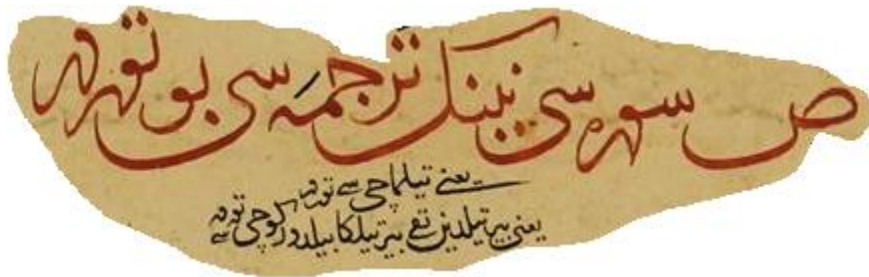 ص سوره سی نینک ترجمه سی بو تورور
یعنے تیلماچی سے تورور
یعنی بیر تیلدین تقے بیر تیلکا بیلدورکوچی سے تورور